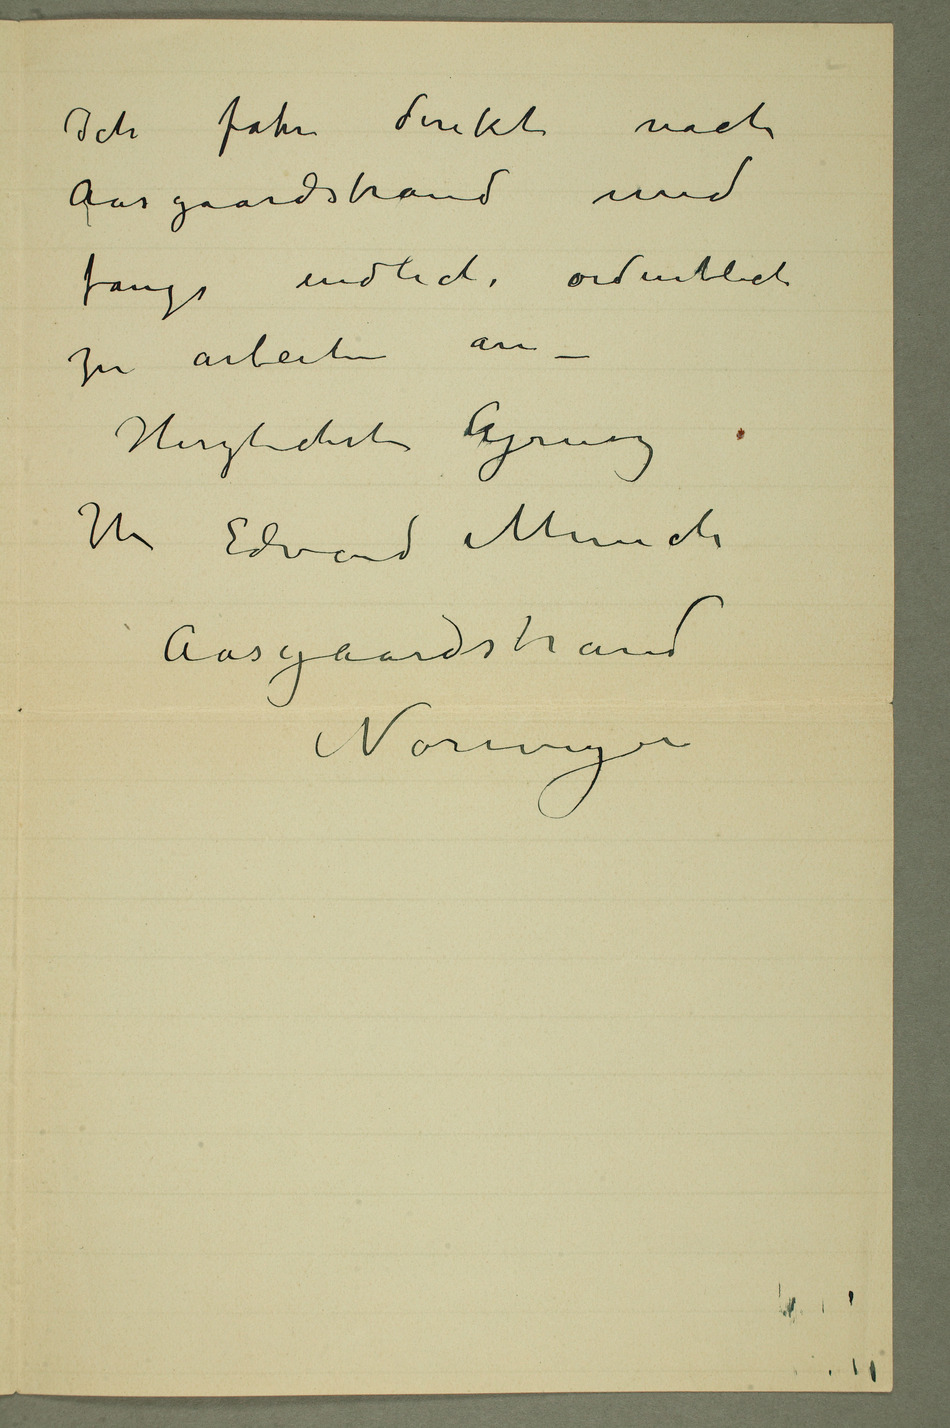 Ich fahre direkt nach
Aasgaardstrand und
fange endlich ordentlich
zu arbeiten an –
Herzlichste
Ihr Edvard Munch
Aasgaardstrand
Norwegen